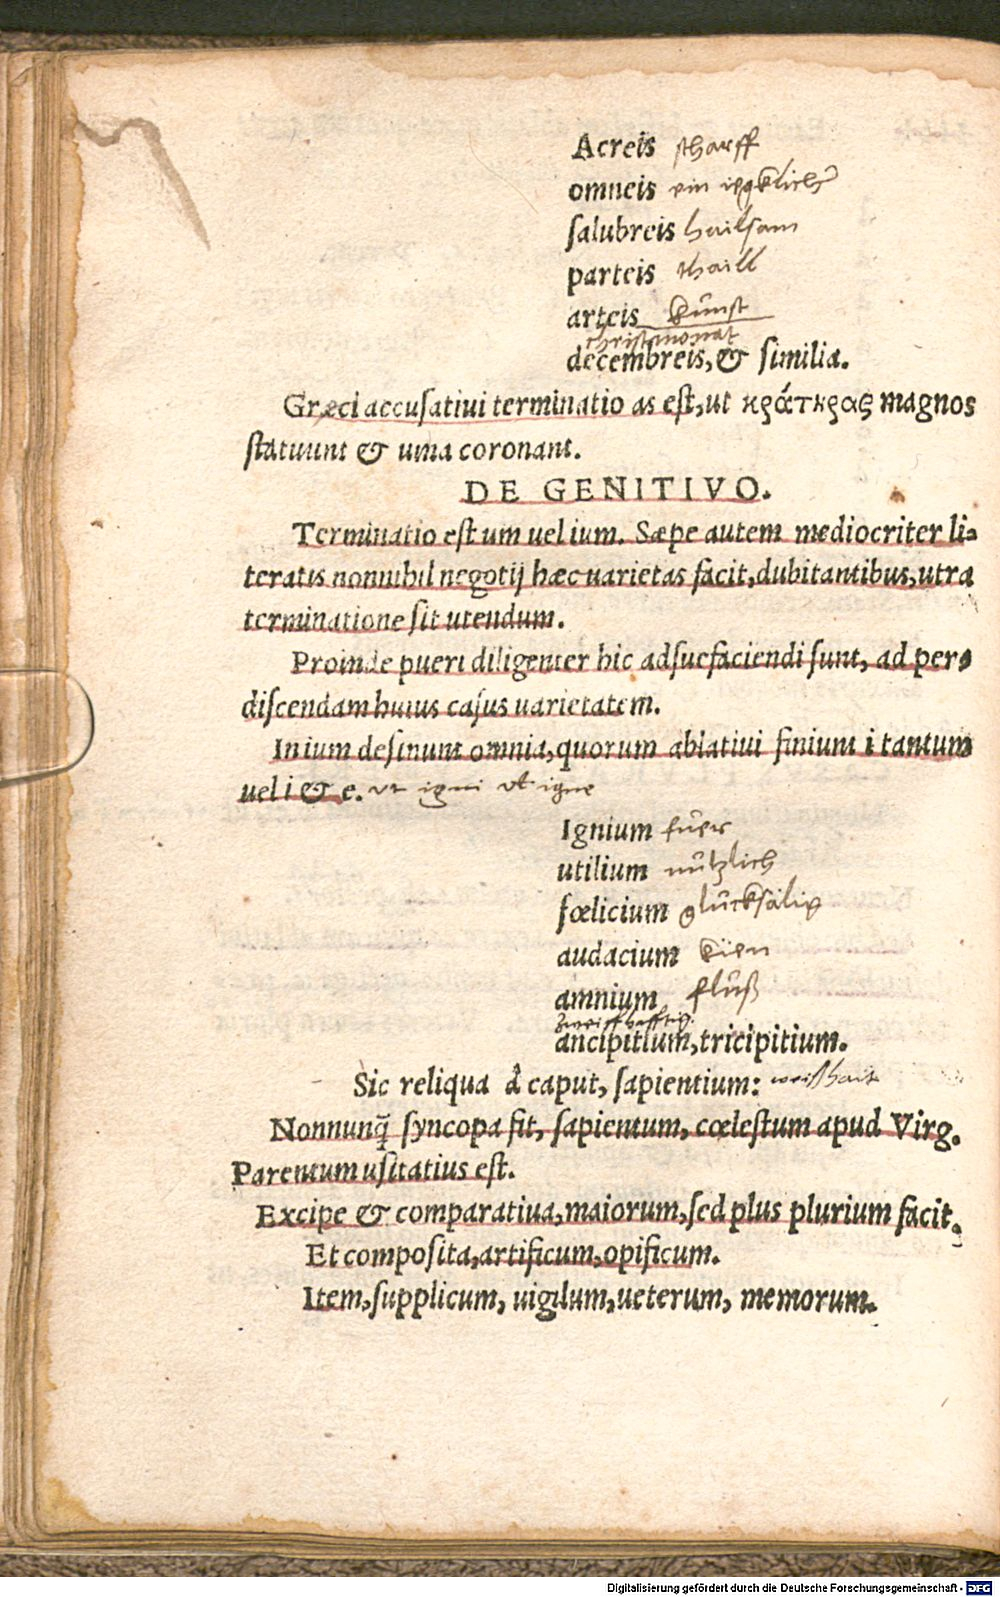 Acreis scharff
omneis ein iegklicher
salubreis hailsam
parteis thaill
arteis kunst
christmonat
decembreis, & similia.
Græci accusatiui terminatio as est, ut κρᾴτκρας magnos
statuunt & uina coronant.
DE GENITIVO.
Terminatio est um uel ium. Sæpe autem mediocriter li-
teratis nonnihil negotij hæc uarietas facit, dubitantibus, utra
terminatione sit utendum.
Proinde pueri diligenter hic adsuefaciendi sunt, ad per-
discendam huius casus uarietatem.
In ium desinunt omnia, quorum ablatiui finiunt i tantum
uel i & e. vt igni vl igne
Ignium fuer
utilium nützlich
fœlicium glücksälig
audacium kien
amnium fluß
zweiffhefftig
ancipitium, tricipitium.
Sic reliqua à caput, sapientium: weißhait
Nonnunq̃ syncopa fit, sapientum, cœlestum apud Virg.
Parentum usitatius est.
Excipe & comparatiua, maiorum, sed plus plurium facit.
Et composita, artificum, opificum.
Item, supplicum, uigilum, ueterum, memorum.
Digitalisierung gefördert durch die Deutsche Forschungsgemeinschaft - DFG